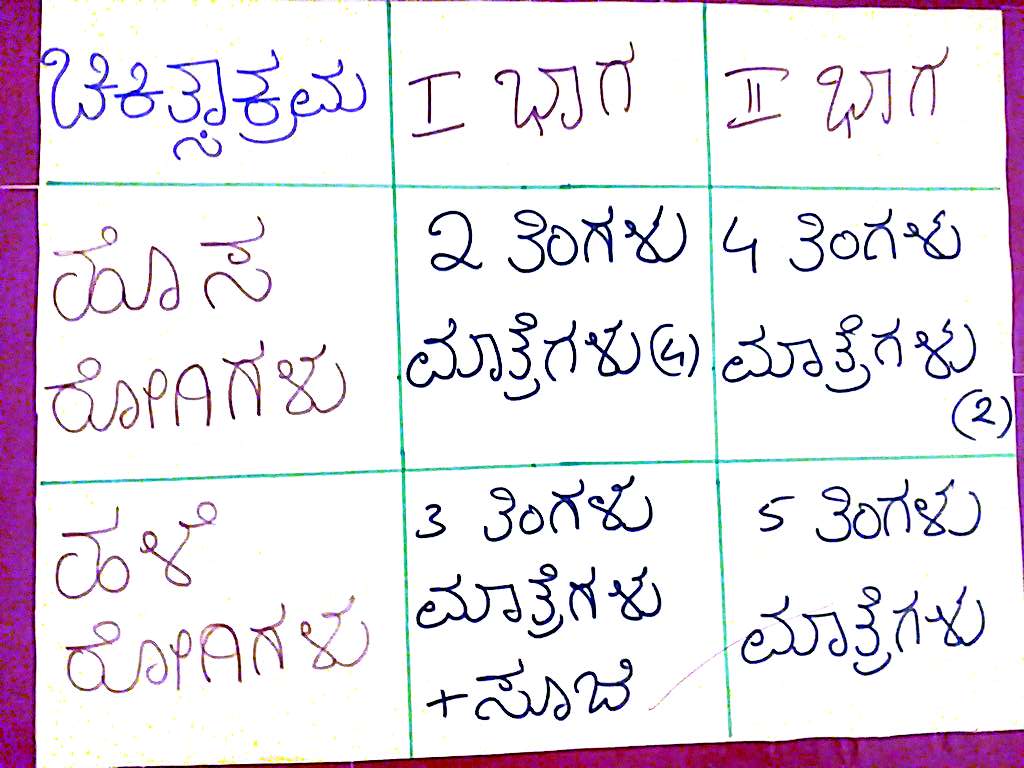 ಚಿಕಿತ್ಸಾಕ್ರಮ I ಭಾಗ II ಭಾಗ
ಹೊಸ
ರೋಗಿಗಳು
2 ತಿಂಗಳು
ಮಾತ್ರೆಗಳು (4)
4 ತಿಂಗಳು
ಮಾತ್ರೆಗಳು
(2)
ಹಳೆ
ರೋಗಿಗಳು
3 ತಿಂಗಳು
ಮಾತ್ರೆಗಳು
+ ಸೂಜಿ
5 ತಿಂಗಳು
ಮಾತ್ರೆಗಳು